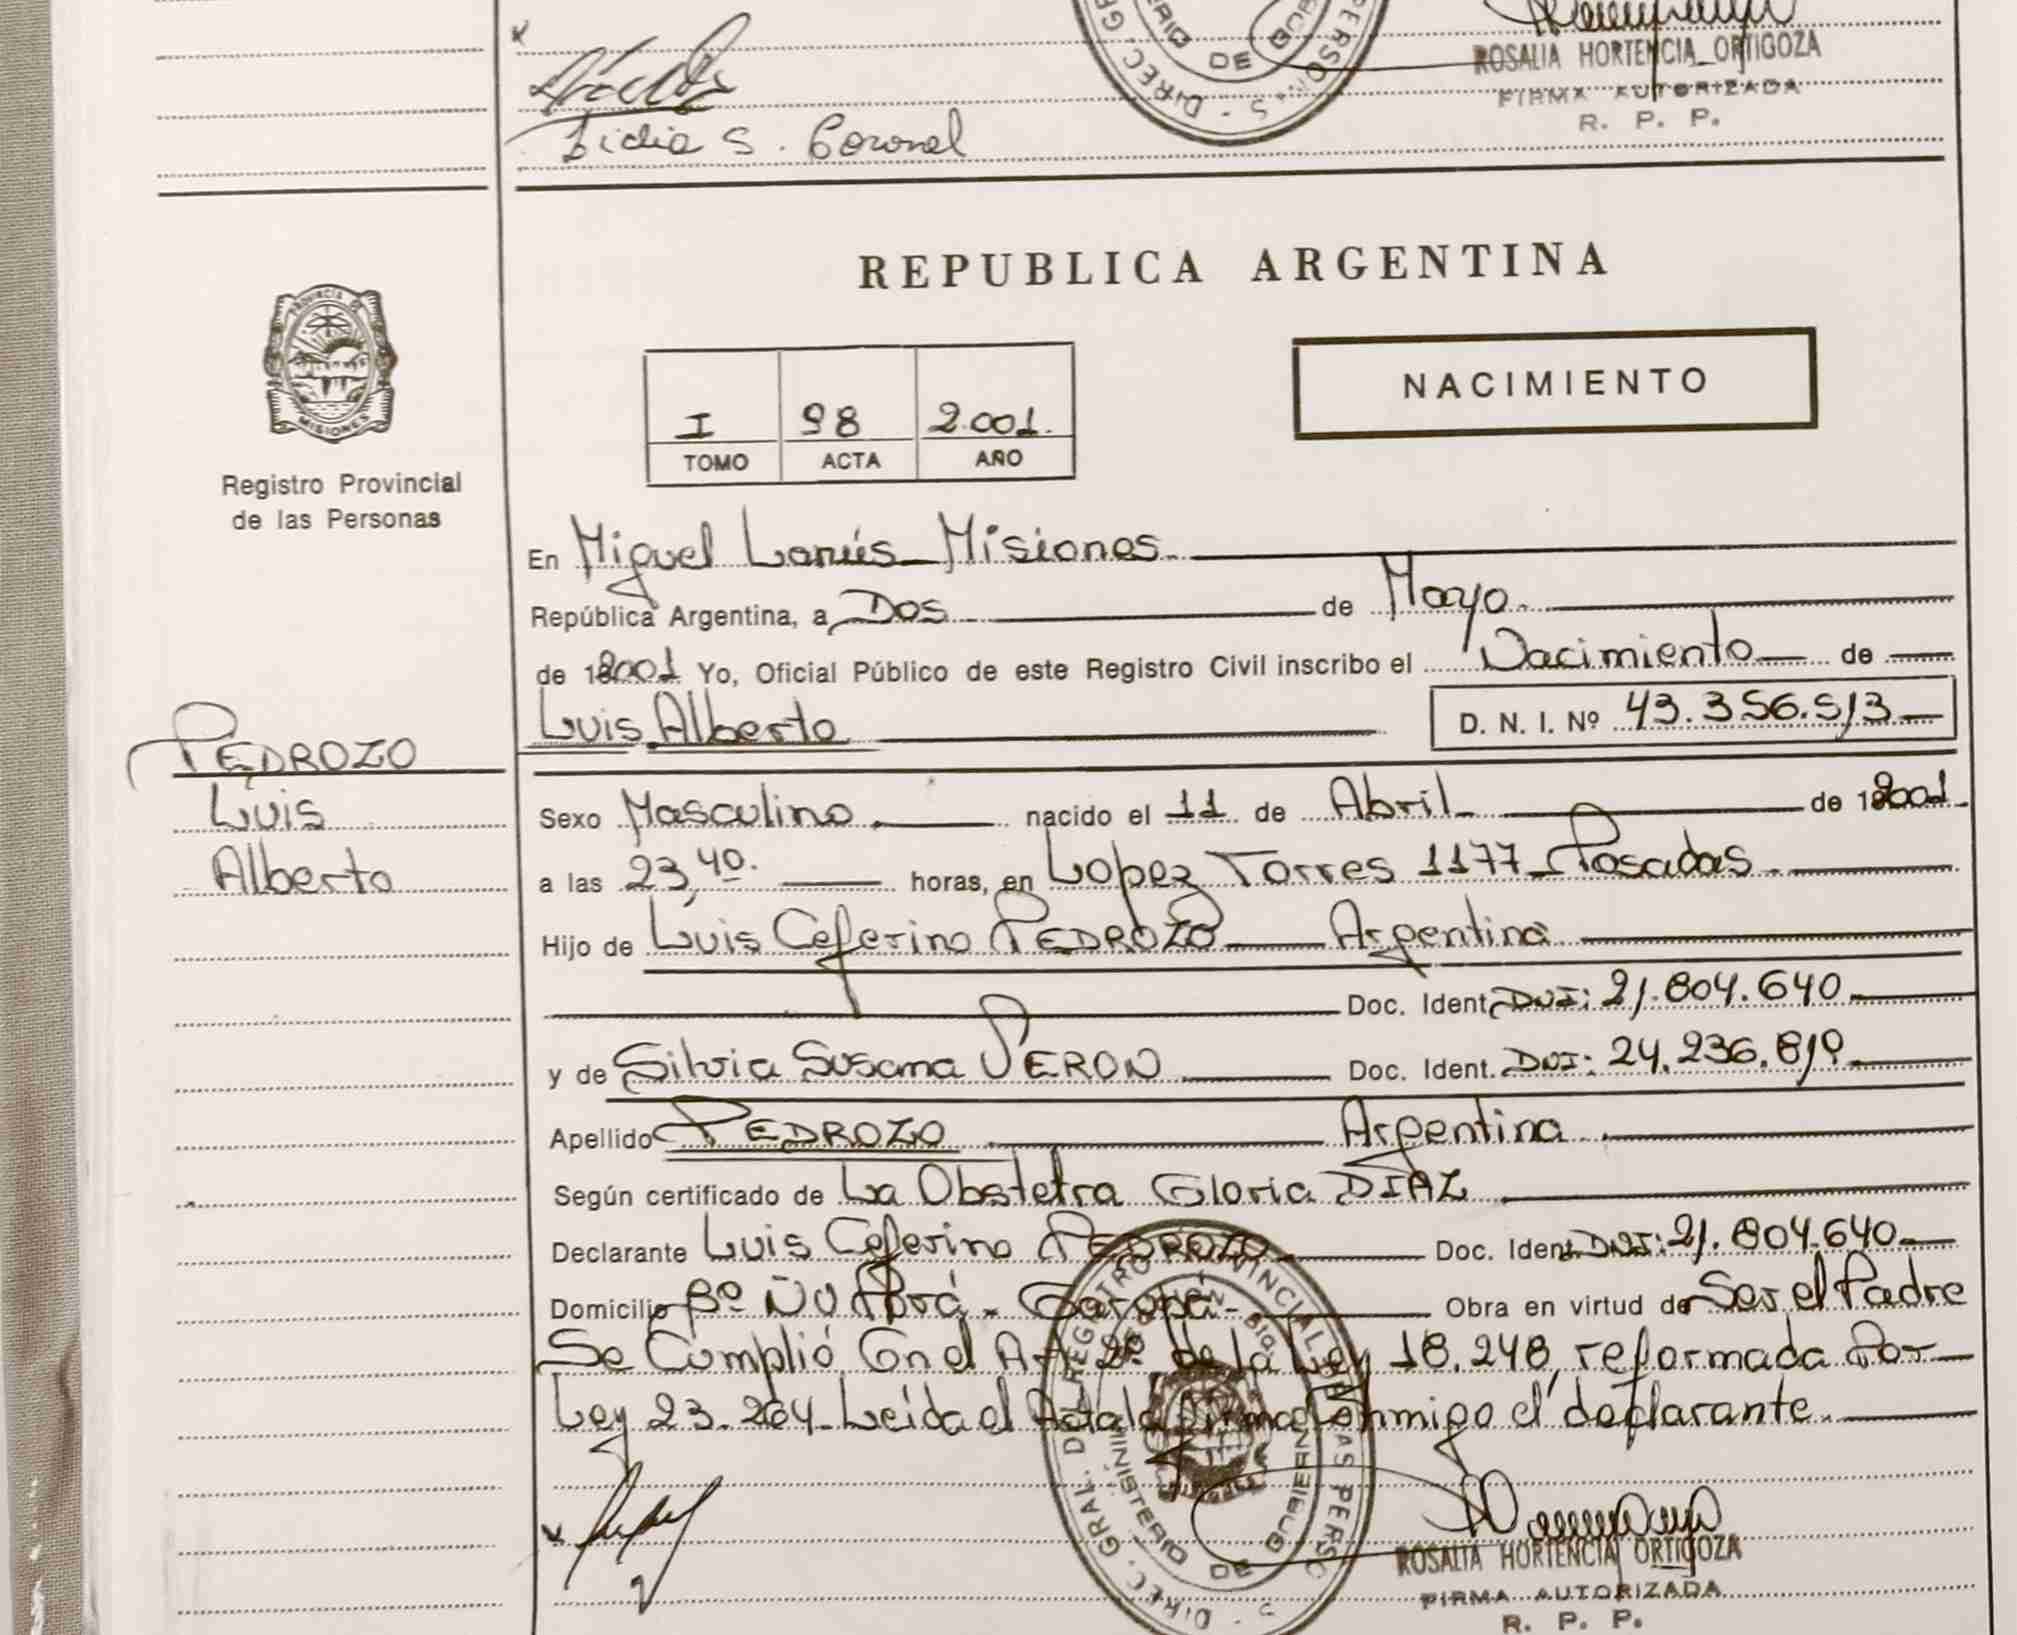 Lidia S. Coronel
ROSALIA HORTENCIA ORTIGOZA
FIRMA AUTORIZADA
R. P. P.
DE
REPUBLICA ARGENTINA
PROVINCIA DE
MISIONES
Registro Provincial
de las Personas
I 98 2.001.
TOMO ACTA AÑO
NACIMIENTO
En Miguel Lanús - Misiones.
República Argentina, a Dos de Mayo.
de 2001 Yo, Oficial Público de este Registro Civil inscribo el Nacimiento de
Luis Alberto D. N. I. Nº 43.356.513
PEDROZO
Luis
Alberto
Sexo Masculino. nacido el 11 de Abril de 2001
a las 23,40. horas, en Lopez Torres 1177 - Posadas.
Hijo de Luis Ceferino PEDROZO Argentina
Doc. Ident. DNI: 21.804.640
y de Silvia Susana VERON Doc. Ident. DNI: 24.236.819
Apellido PEDROZO Argentina.
Según certificado de La Obstetra Gloria DIAZ
Declarante Luis Ceferino PEDROZO Doc. Ident. DNI: 21.804.640
Domicilio Bº Ñu Porá - Garupá - Obra en virtud de Ser el Padre
Se Cumplió Con el Art. 2º de la Ley 18.248, reformada Por
Ley 23.264 - Leída el Acta la Firma Conmigo el declarante.
DIREC. GRAL. DEL REGISTRO PROVINCIAL DE LAS PERSONAS
MINISTERIO DE GOBIERNO
ROSALIA HORTENCIA ORTIGOZA
FIRMA AUTORIZADA
R. P. P.